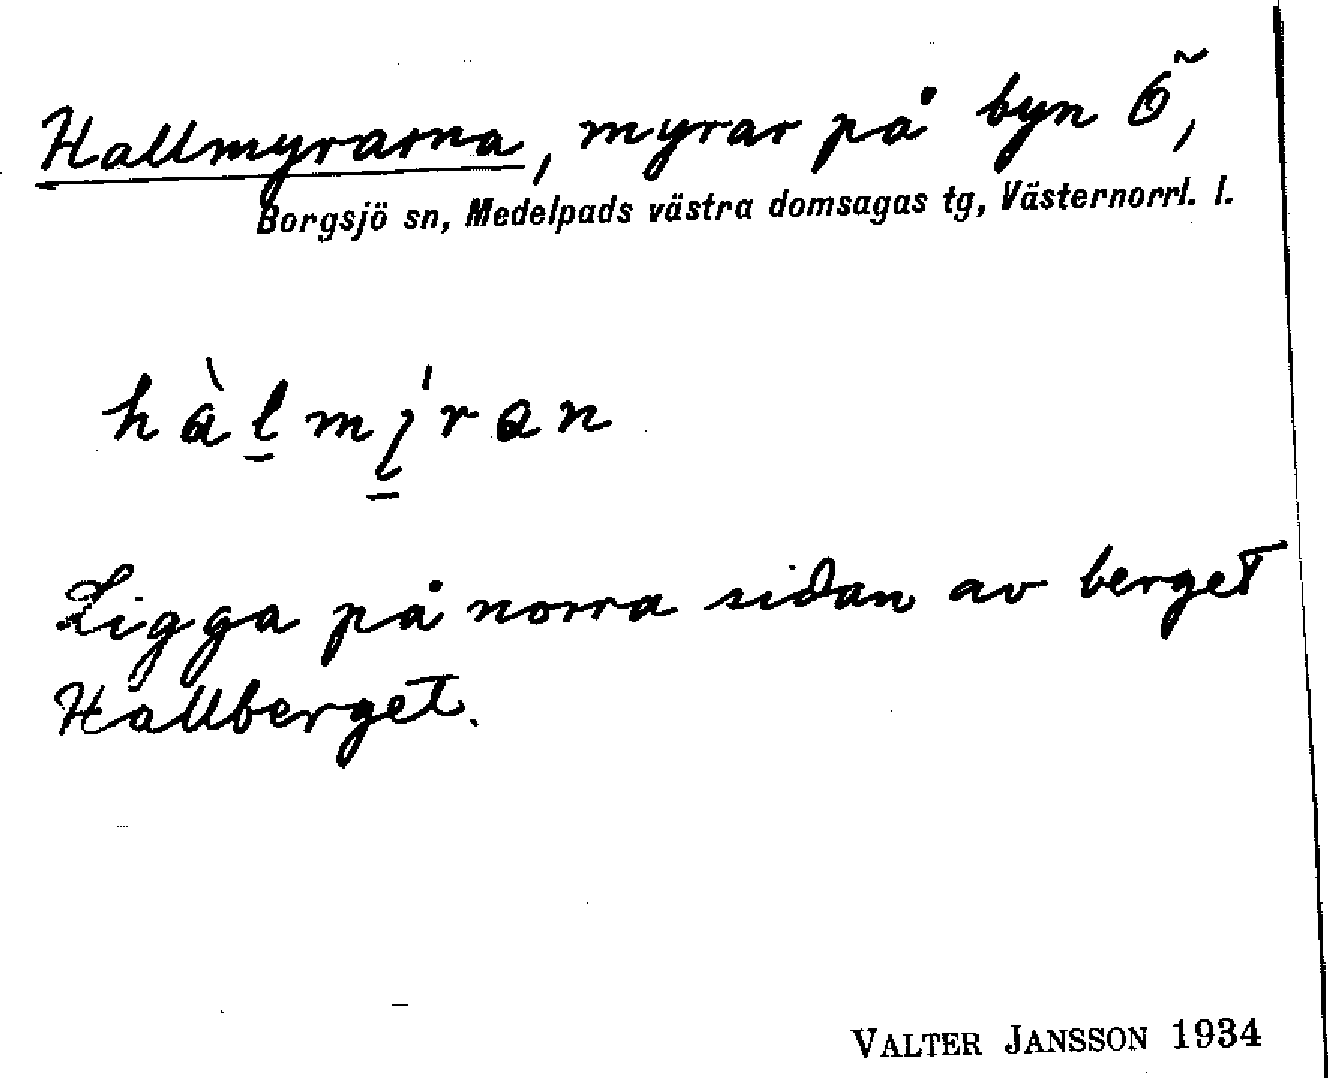 Hallmyrarna, myrar på byn Ö,
Borgsjö sn, Medelpads västra domsagas tg, Västernorrl. l.
hàḻmí̱ran
Ligga på norra sidan av berget
Hallberget.
VALTER JANSSON 1934